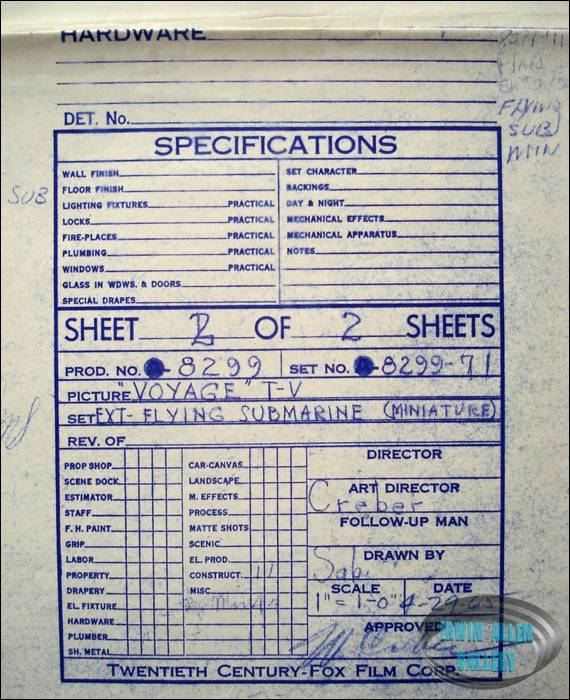 HARDWARE
FLYING
SUB
MIN
DET. No.
SPECIFICATIONS
SUB
WALL FINISH
FLOOR FINISH
LIGHTING FIXTURES PRACTICAL
LOCKS PRACTICAL
FIRE-PLACES PRACTICAL
PLUMBING PRACTICAL
WINDOWS PRACTICAL
GLASS IN WDWS. & DOORS
SPECIAL DRAPES
SET CHARACTER
BACKINGS
DAY & NIGHT
MECHANICAL EFFECTS
MECHANICAL APPARATUS
NOTES
SHEET 2 OF 2 SHEETS
PROD. NO. -8299 SET NO. -8299-71
PICTURE "VOYAGE" T-V
SET EXT- FLYING SUBMARINE (MINIATURE)
REV. OF
PROP SHOP
SCENE DOCK
ESTIMATOR
STAFF
F. H. PAINT
GRIP
LABOR
PROPERTY
DRAPERY
EL. FIXTURE
HARDWARE
PLUMBER
SH. METAL
CAR-CANVAS
LANDSCAPE
M. EFFECTS
PROCESS
MATTE SHOTS
SCENIC
EL. PROD.
CONSTRUCT. 11
MISC
DIRECTOR
ART DIRECTOR
Creber
FOLLOW-UP MAN
DRAWN BY
SCALE DATE
1" = 1'-0" 4-29-65
APPROVED
TWENTIETH CENTURY-FOX FILM CORP.
IRWIN ALLEN
GALLERY